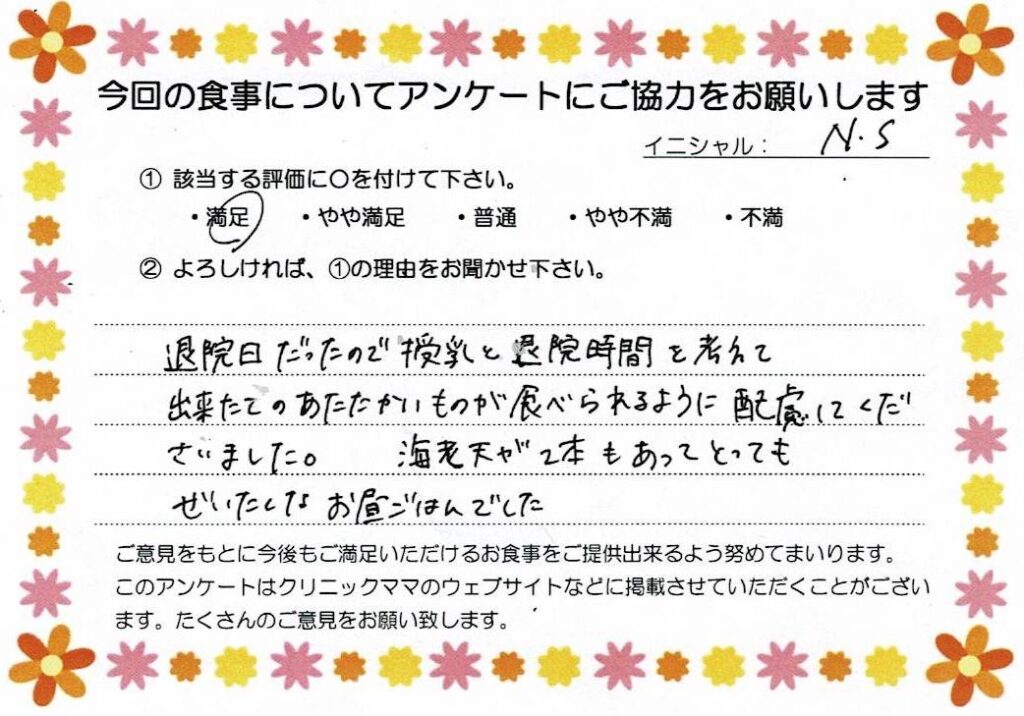 今回の食事についてアンケートにご協力をお願いします
イニシャル： N.S
① 該当する評価に〇を付けて下さい。
・満足 ・やや満足 ・普通 ・やや不満 ・不満
② よろしければ、①の理由をお聞かせ下さい。
退院日だったので授乳と退院時間を考えて
出来たてのあたたかいものが食べられるように配慮してくだ
さいました。 海老天が2本もあってとっても
ぜいたくなお昼ごはんでした
ご意見をもとに今後もご満足いただけるお食事をご提供出来るよう努めてまいります。
このアンケートはクリニックママのウェブサイトなどに掲載させていただくことがござい
ます。たくさんのご意見をお願い致します。